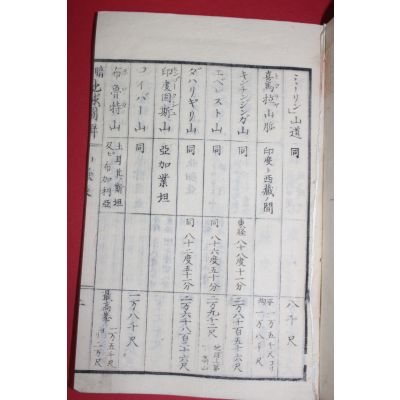 ミーリン山道 同 八千尺
喜馬拉山脈 印度ト西藏ノ間 平均 一万五千尺ヨリ 一万八千尺
キンチンジンガ山 同 東経 八十八度十一分 二万八千百五十六尺
エベレスト山 同 同 八十六度五十分 二万九千二尺 地球上第一高山
ダハリギリ山 同 同 八十二度五十分 二万六千八百二十六尺
印度固斯山 亞加業坦
コイバー山 同 一万八千尺
布魯特山 土耳其斯坦及ヒ布加利亞 最高峯 一万五千尺 二万尺